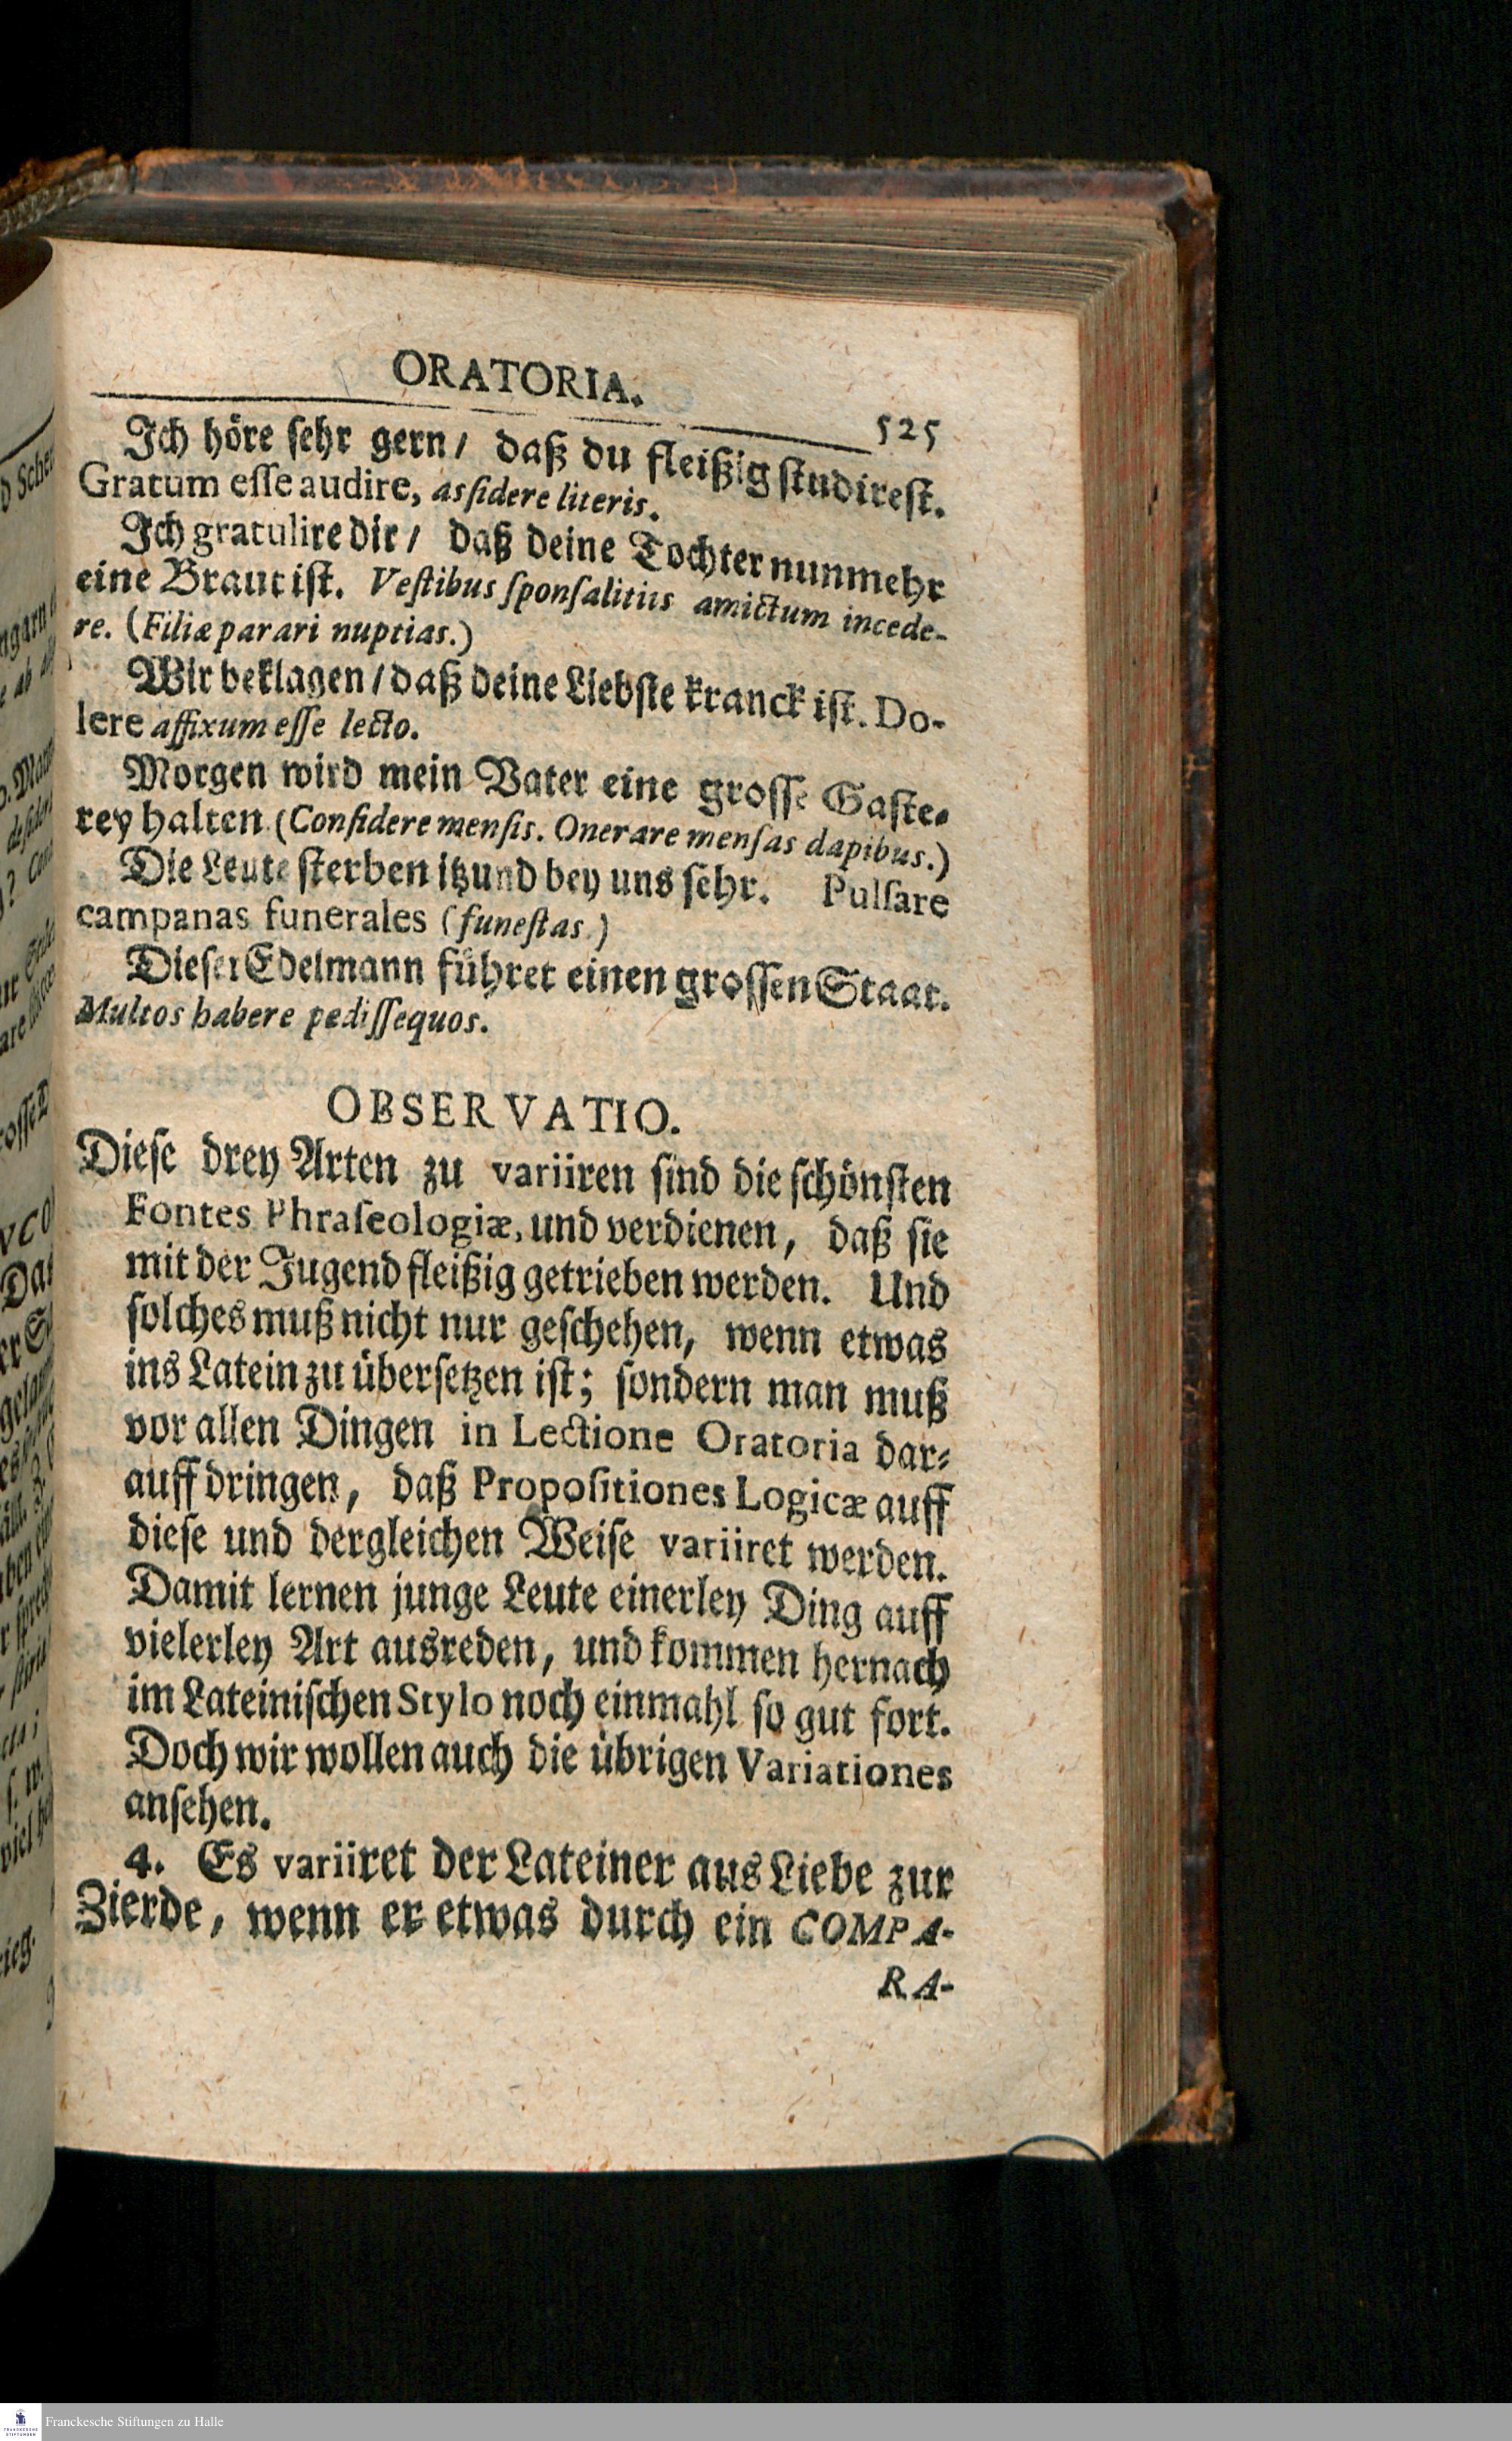 ORATORIA.
525
Ich höre ſehr gern/ daß du fleißig ſtudireſt.
Gratum eſſe audire, asſidere literis.
Ich gratulire dir/ daß deine Tochter nunmehr
eine Braut iſt. Veſtibus ſponſalitiis amictum incede-
re. (Filiæ parari nuptias.)
Wir beklagen/ daß deine Liebſte kranck iſt. Do-
lere affixum eſſe lecto.
Morgen wird mein Vater eine groſſe Gaſte-
rey halten (Conſidere menſis. Onerare menſas dapibus.)
Die Leute ſterben itzund bey uns ſehr. Pulſare
campanas funerales (funeſtas.)
Dieſer Edelmann führet einen groſſen Staat.
Multos habere pediſſequos.
OBSERVATIO.
Dieſe drey Arten zu variiren ſind die ſchönſten
Fontes Phraſeologiæ, und verdienen, daß ſie
mit der Jugend fleißig getrieben werden. Und
ſolches muß nicht nur geſchehen, wenn etwas
ins Latein zu überſetzen iſt; ſondern man muß
vor allen Dingen in Lectione Oratoria dar-
auff dringen, daß Propoſitiones Logicæ auff
dieſe und dergleichen Weiſe variiret werden.
Damit lernen junge Leute einerley Ding auff
vielerley Art ausreden, und kommen hernach
im Lateiniſchen Stylo noch einmahl ſo gut fort.
Doch wir wollen auch die übrigen Variationes
anſehen.
4. Es variiret der Lateiner aus Liebe zur
Zierde, wenn er etwas durch ein COMPA-
RA-
Franckesche Stiftungen zu Halle